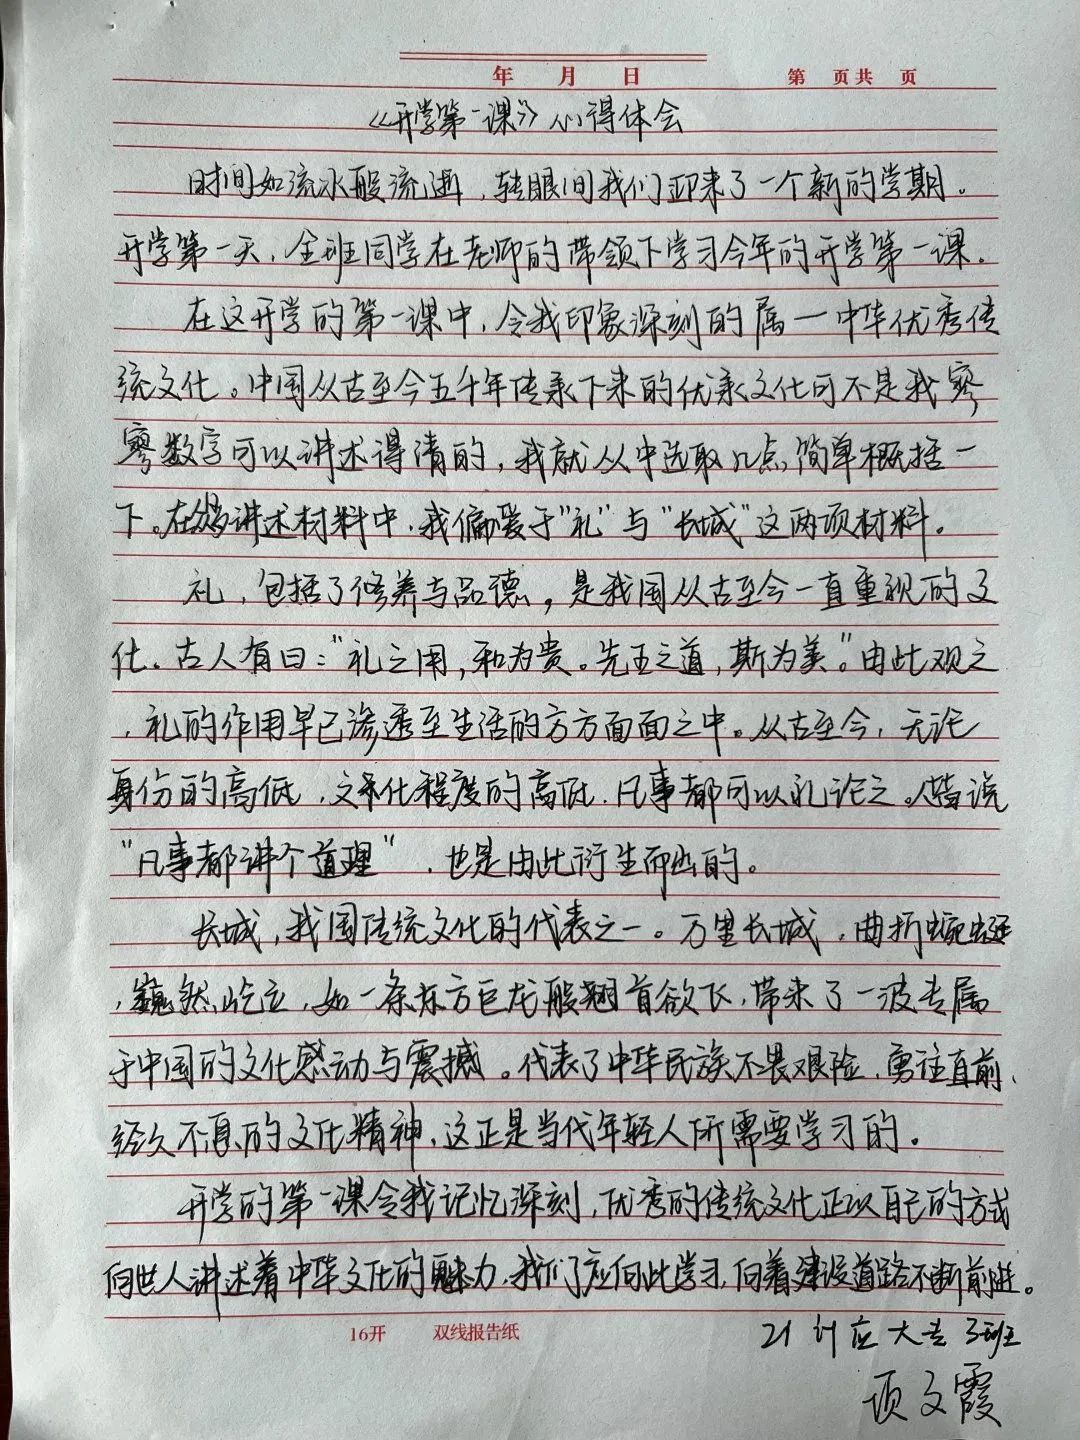 年 月 日 第 页共 页
《开学第一课》心得体会
时间如流水般流逝，转眼间我们迎来了一个新的学期。
开学第一天，全班同学在老师的带领下学习今年的开学第一课。
在这开学的第一课中，令我印象深刻的属一中华优秀传
统文化。中国从古至今五千年传承下来的优承文化可不是我寥
寥数字可以讲述得清的，我就从中选取几点简单概括一
下。在讲述材料中，我偏爱于"礼"与"长城"这两项材料。
礼，包括了修养与品德，是我国从古至今一直重视的文
化。古人有曰："礼之用，和为贵。先王之道，斯为美。"由此观之
，礼的作用早已渗透至生活的方方面面之中。从古至今，无论
身份的高低，文化程度的高低，凡事都可以礼论之。人常说
"凡事都讲个道理"，也是由此衍生而出的。
长城，我国传统文化的代表之一。万里长城，曲折蜿蜒
，巍然屹立，如一条东方巨龙般翘首欲飞，带来了一波专属
于中国的文化感动与震撼。代表了中华民族不畏艰险，勇往直前，
经久不息的文化精神，这正是当代年轻人所需要学习的。
开学的第一课令我记忆深刻，优秀的传统文化正以自己的方式
向世人讲述着中华文化的魅力，我们应向此学习，向着建设道路不断前进。
16开 双线报告纸
21计应大专3班
项文霞